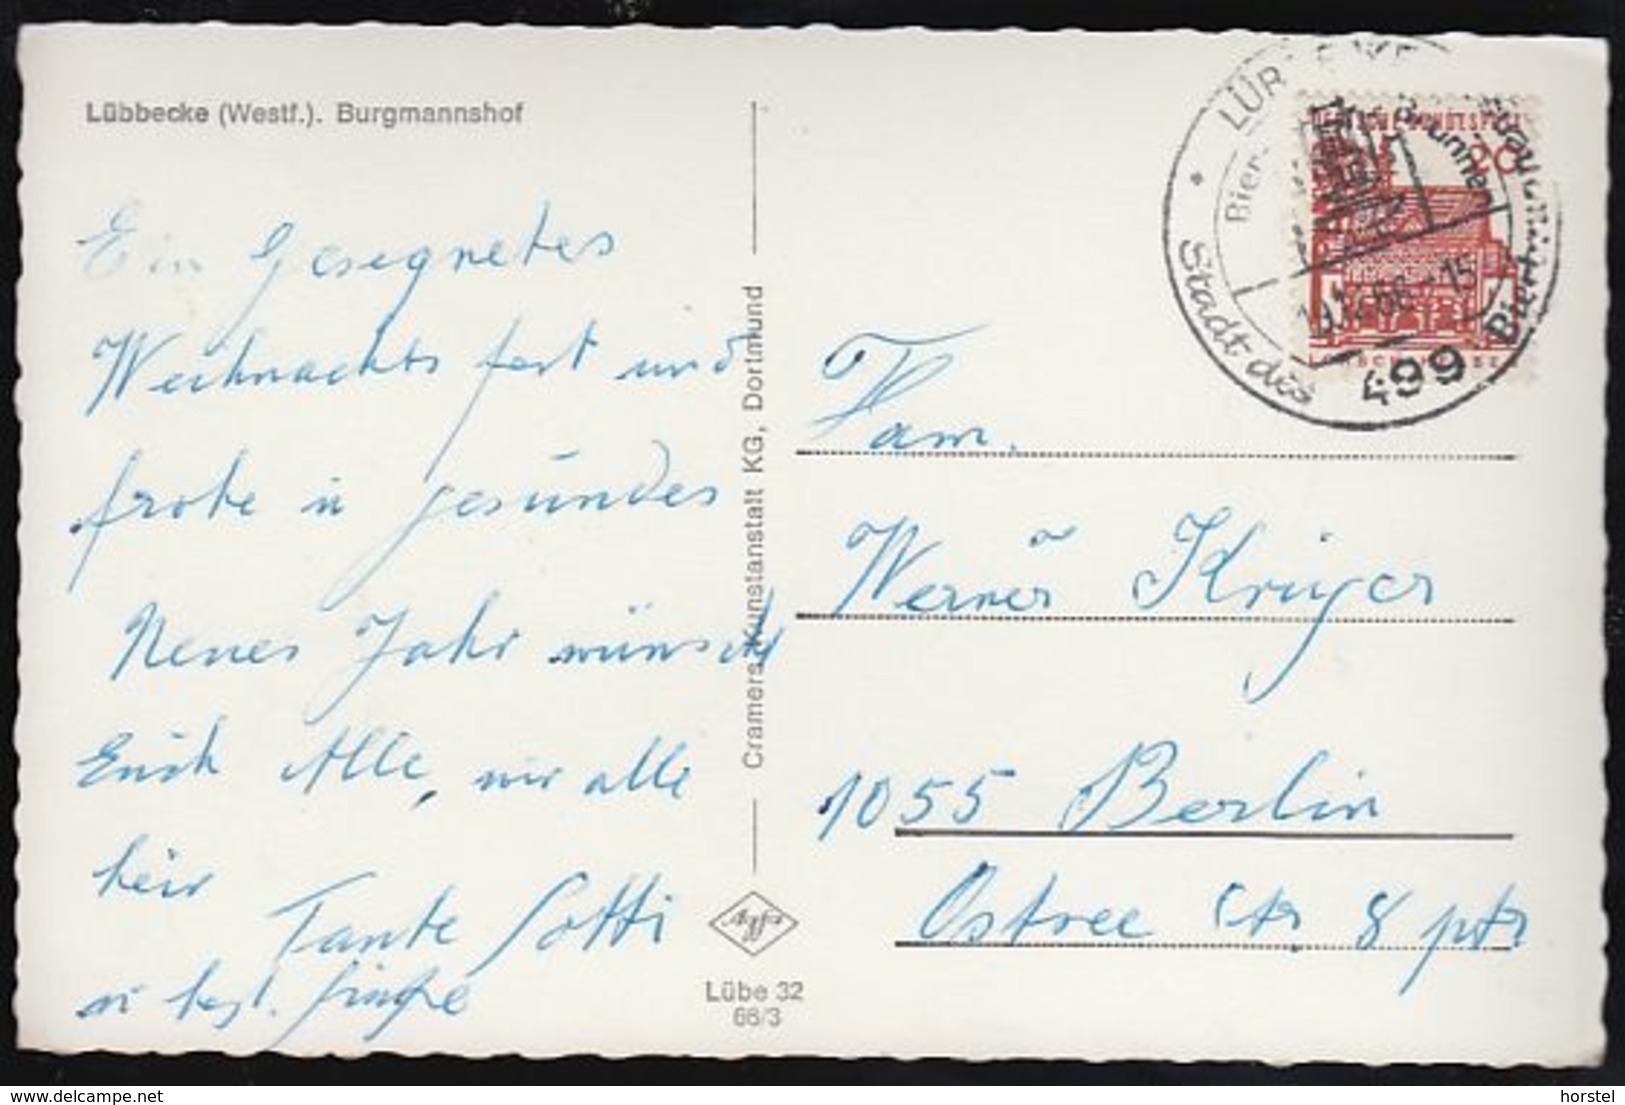 Lübbecke (Westf.). Burgmannshof
Ein Gesegnetes
Weihnachtsfest und
frohe u gesundes
Neues Jahr wünscht
Euch Alle, wir alle
hier
Tante Lotti
u best. Grüße
Cramers Kunstanstalt KG, Dortmund
Agfa
Lübe 32
66/3
DEUTSCHE BUNDESPOST
20
Stadt des
499
Fam.
Werner Krüger
1055 Berlin
Ostsee Str 8 ptr
delcampe.net
horstel